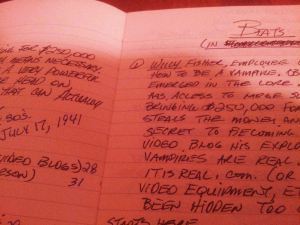 FOR $250,000
MEANS NECESSARY.
A VERY POWERFUL
READ ON
THAT CAN ACTUALLY
80S.
JULY 17, 1941
VIDEO BLOGS) 28
PERSON) 31
BEATS
(IN
① WILLY FISHER, EMPLOYEE
HOW TO BE A VAMPIRE,
EMERGED IN THE LORE
HAS ACCESS TO MAKE
BRINGING $250,000 FOR
STEALS THE MONEY AND
SECRET TO BECOMING
VIDEO BLOG HIS EXPLO
VAMPIRES ARE REAL
IT IS REAL.COM. (OR
VIDEO EQUIPMENT, E
BEEN HIDDEN TOO
STARTS HERE